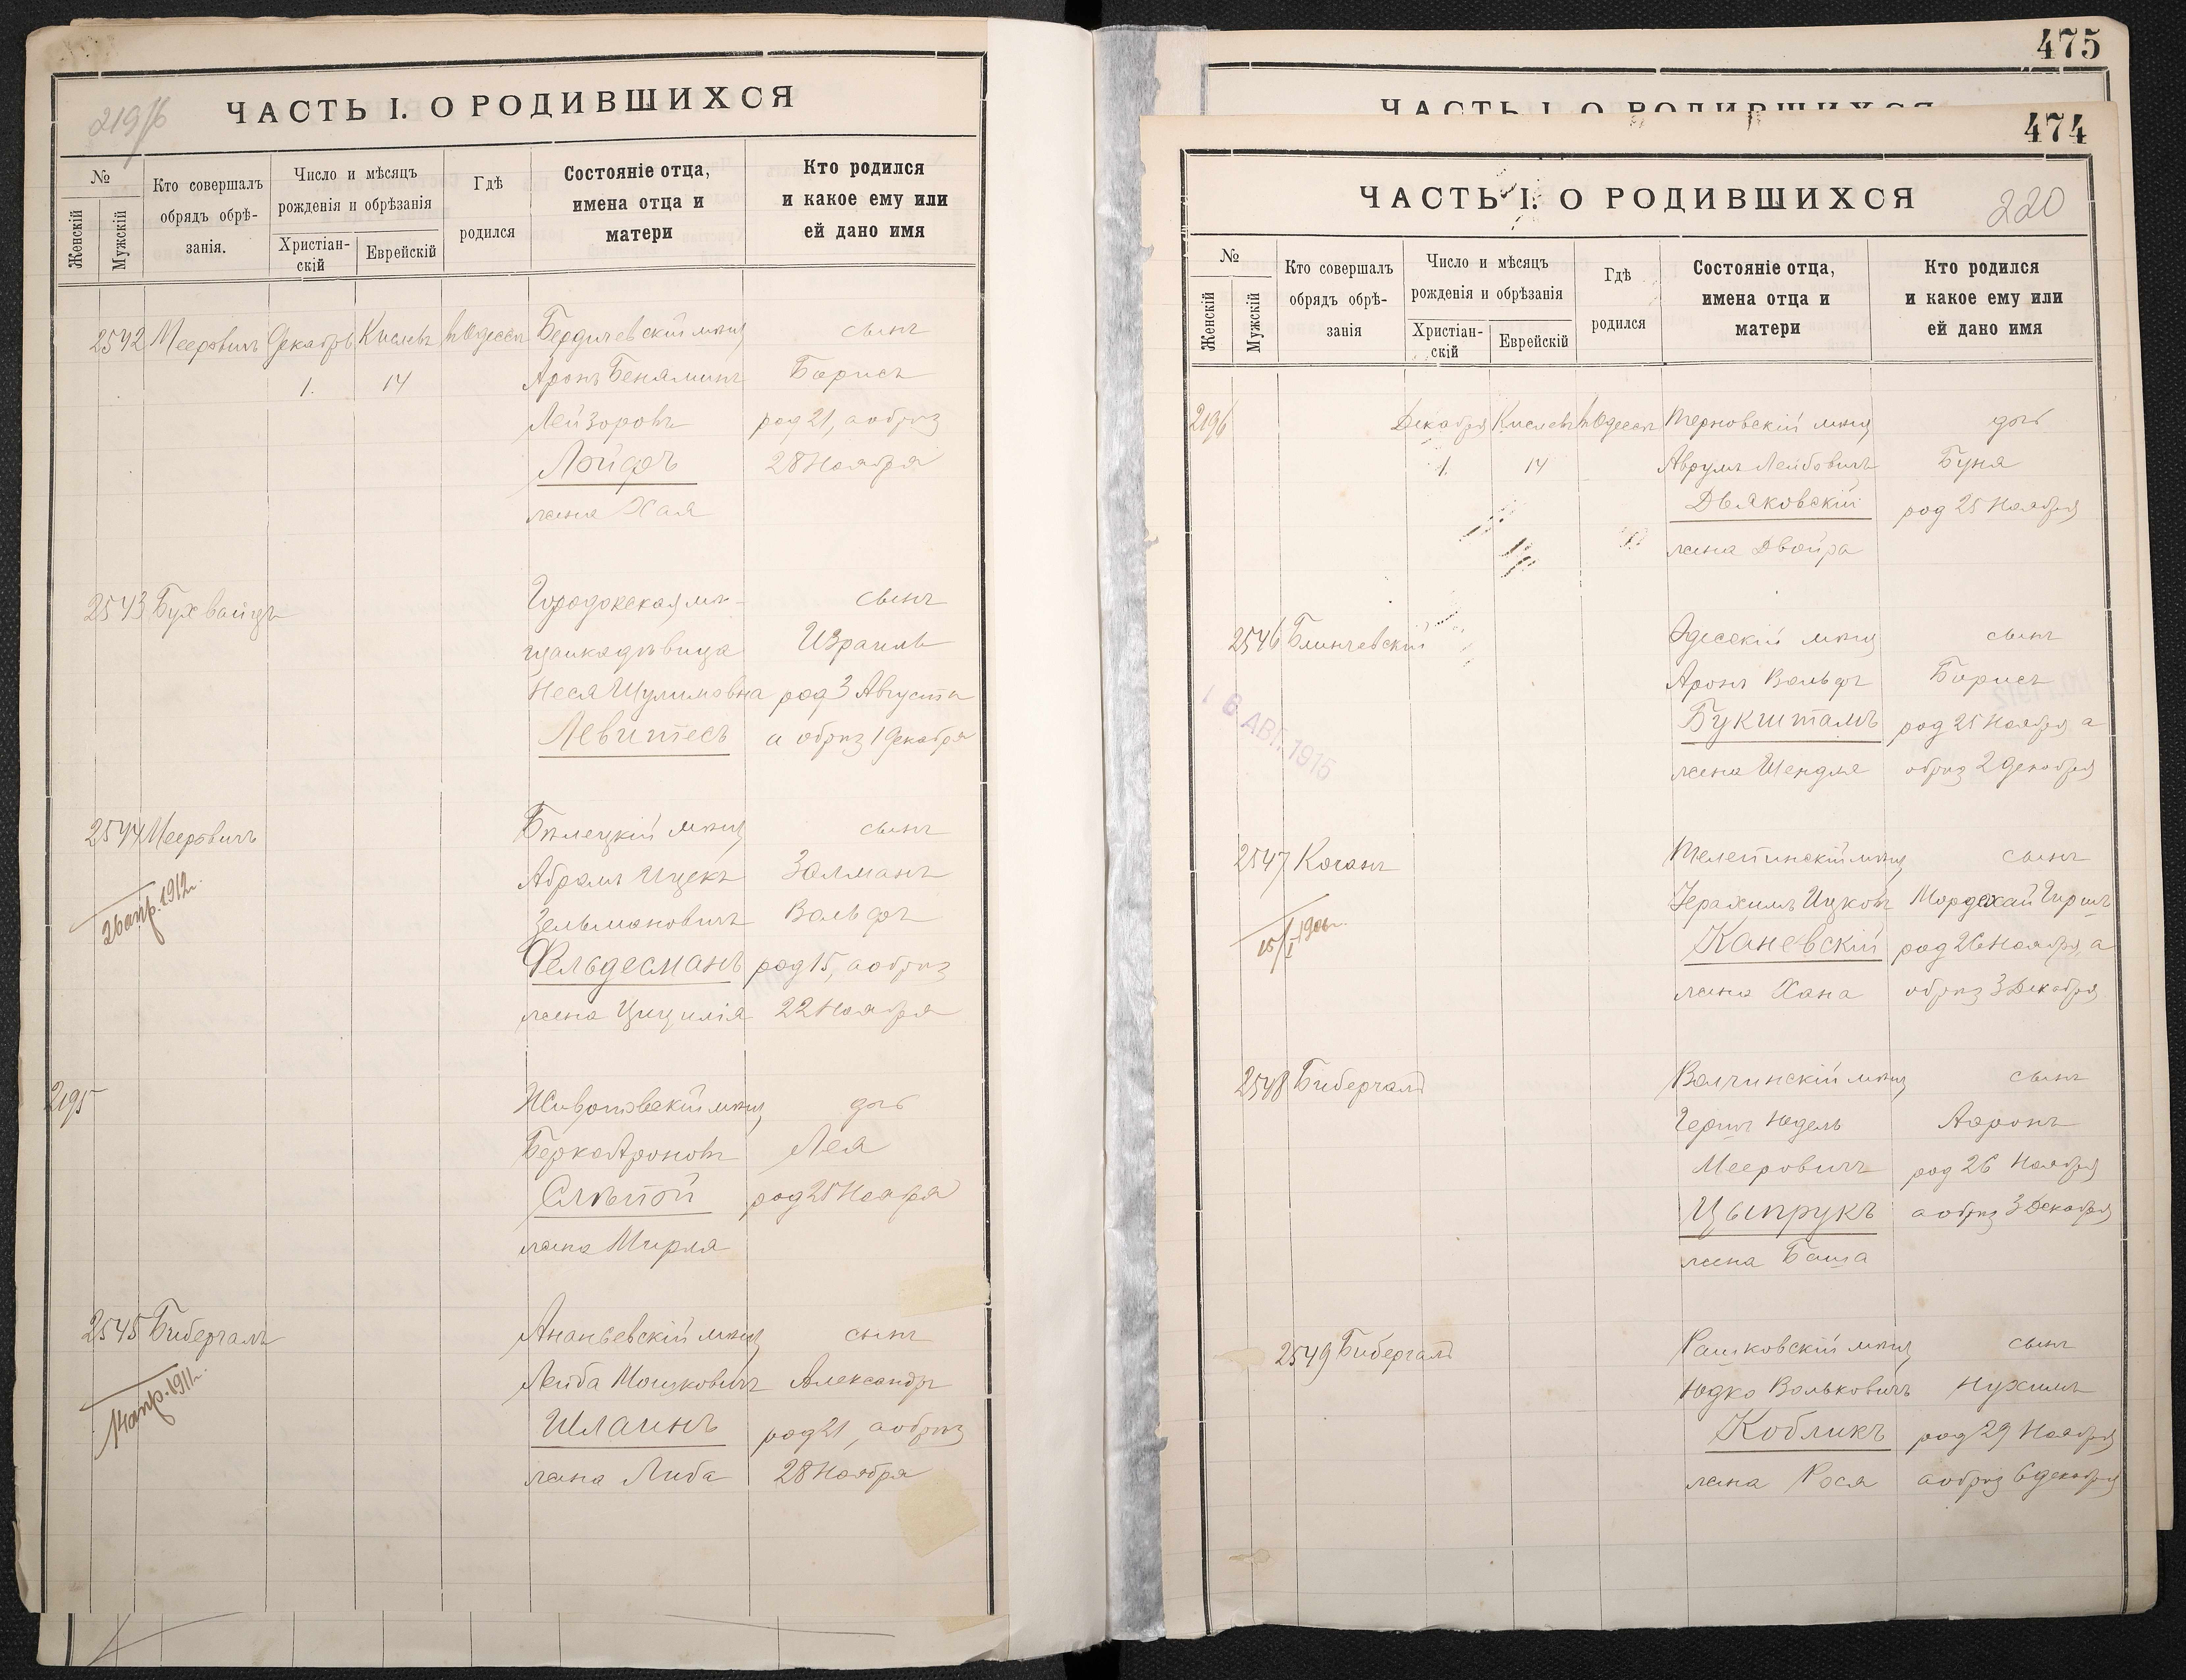 ЧАСТЬ I. О РОДИВШИХСЯ
219/б
№
Женскій
Мужскій
Кто совершалъ
обрядъ обрѣ-
занія.
Число и мѣсяцъ
рожденія и обрѣзанія
Христіан-
скій
Еврейскій
Гдѣ
родился
Состояніе отца,
имена отца и
матери
Кто родился
и какое ему или
ей дано имя
2542 Мееровичъ Декабрь Кислевъ въ Одессѣ Бердичевскій мѣщ сынъ
1. 14 Аронъ Беняминъ Борисъ
Лейзоровъ род 21, а обрѣз
Лойфъ 28 Ноября
жена Хая
2543 Бухвайцъ Городокская мѣ- сынъ
щанка дѣвица Израиль
Неся Шулимовна род 3 Августа
Левитесъ и обрѣз 1 Декабря
2544 Мееровичъ Бѣлецкій мѣщ сынъ
Абрамъ Ицекъ Залманъ
26 апр. 1912 г.
Зельмановичъ Вольфъ
Фельдесманъ род 15, а обрѣз
жена Цицилія 22 Ноября
2195 Животовскій мѣщ дочь
Берко Ароновъ Лея
Слѣпой род 25 Ноября
жена Мирля
2545 Бибергалъ Ананьевскій мѣщ сынъ
Лейба Мошковичъ Александръ
14 апр. 1911 г.
Шлаинъ род 21, а обрѣз
жена Либа 28 Ноября
475
ЧАСТЬ I. О РОДИВШИХСЯ
474
ЧАСТЬ I. О РОДИВШИХСЯ
220
№
Женскій
Мужскій
Кто совершалъ
обрядъ обрѣ-
занія
Число и мѣсяцъ
рожденія и обрѣзанія
Христіан-
скій
Еврейскій
Гдѣ
родился
Состояніе отца,
имена отца и
матери
Кто родился
и какое ему или
ей дано имя
2196 Декабря Кислевъ въ Одессѣ Терновскій мѣщ дочь
1. 14 Аврумъ Лейбовичъ Буня
Дьяковскій род 25 Ноября
жена Двойра
2546 Блинчевскій Одесскій мѣщ сынъ
Аронъ Вольфъ Борисъ
16 АВГ. 1915
Букштамъ род 25 Ноября, а
жена Шендля обрѣз 2 декабря
2547 Коганъ Телепинскій мѣщ сынъ
Іерахимъ Ицковъ Мордехай Гиршъ
15/I 1906 г.
Каневскій род 26 Ноября, а
жена Хана обрѣз 3 Декабря
2548 Бибергалъ Волчинскій мѣщ сынъ
Гершъ Юдель Ааронъ
Мееровичъ род 26 Ноября
Цыпрукъ а обрѣз 3 Декабря
жена Баша
2549 Бибергалъ Рашковскій мѣщ сынъ
Юдко Вольковичъ Нухимъ
Кобликъ род 29 Ноября
жена Рося а обрѣз 6 декабря